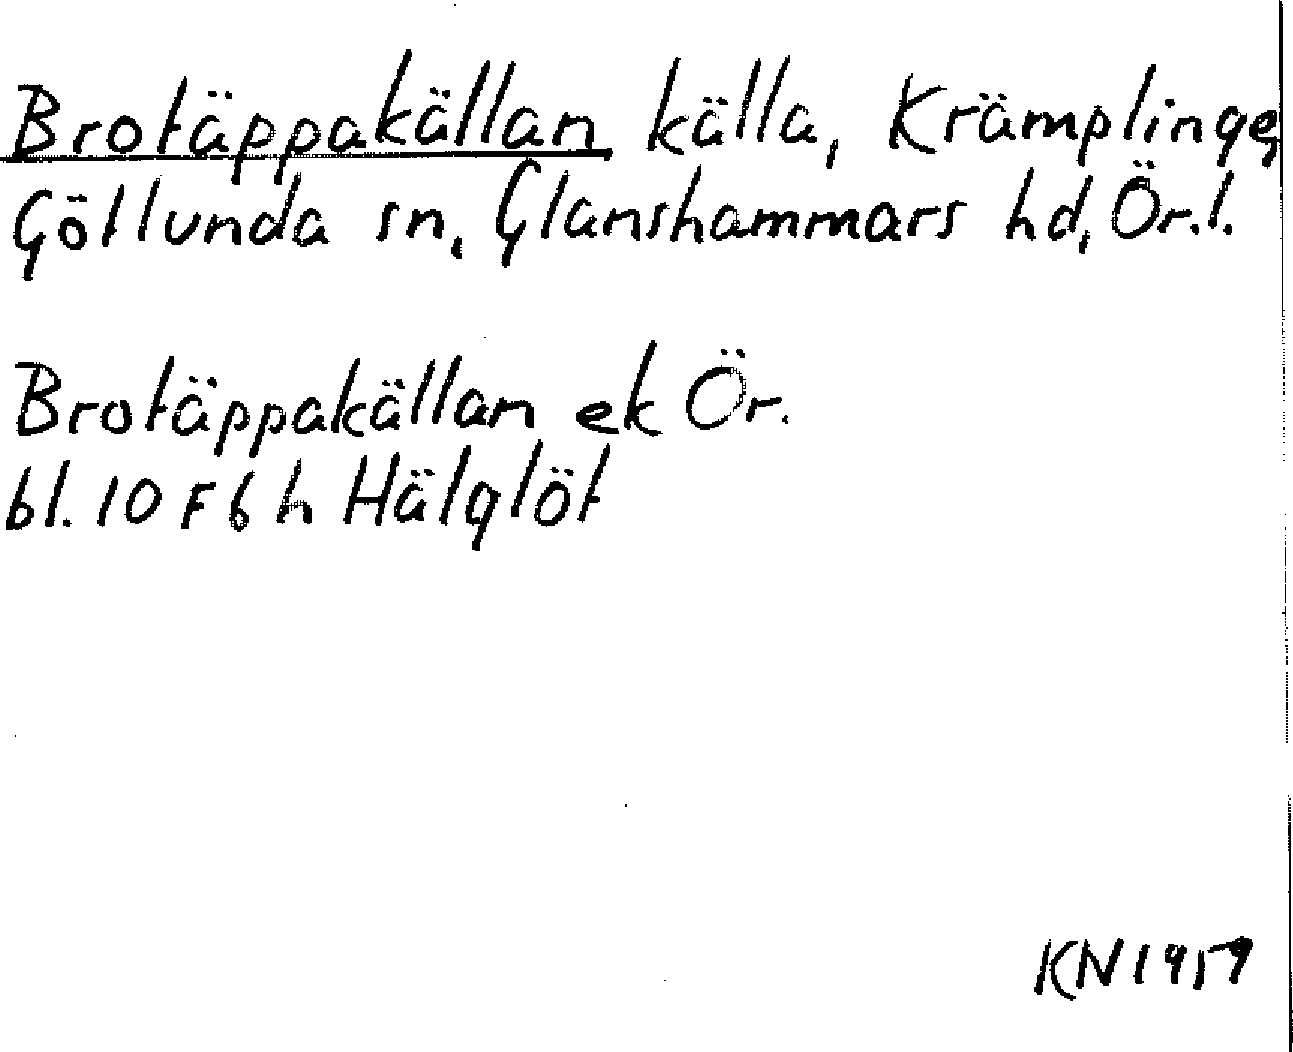 Brotäppakällan, källa, Krämplinge,
Göllunda sn, Glanshammars hd, Ör.l.
Brotäppakällan ek Ör.
bl. 10 F 6 h Hälglöt
KN 1959